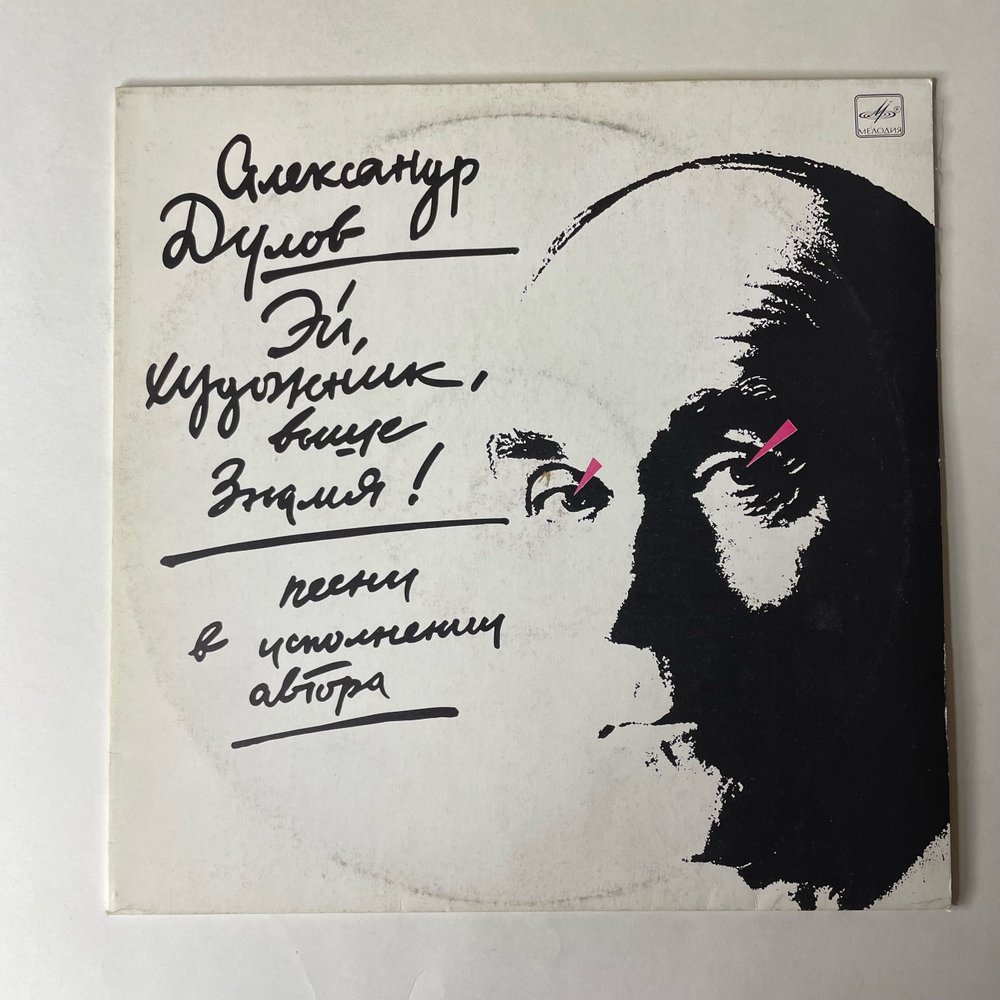 Александр
Дулов
Эй,
художник,
выше
Знамя!
песни
в исполнении
автора
МЕЛОДИЯ